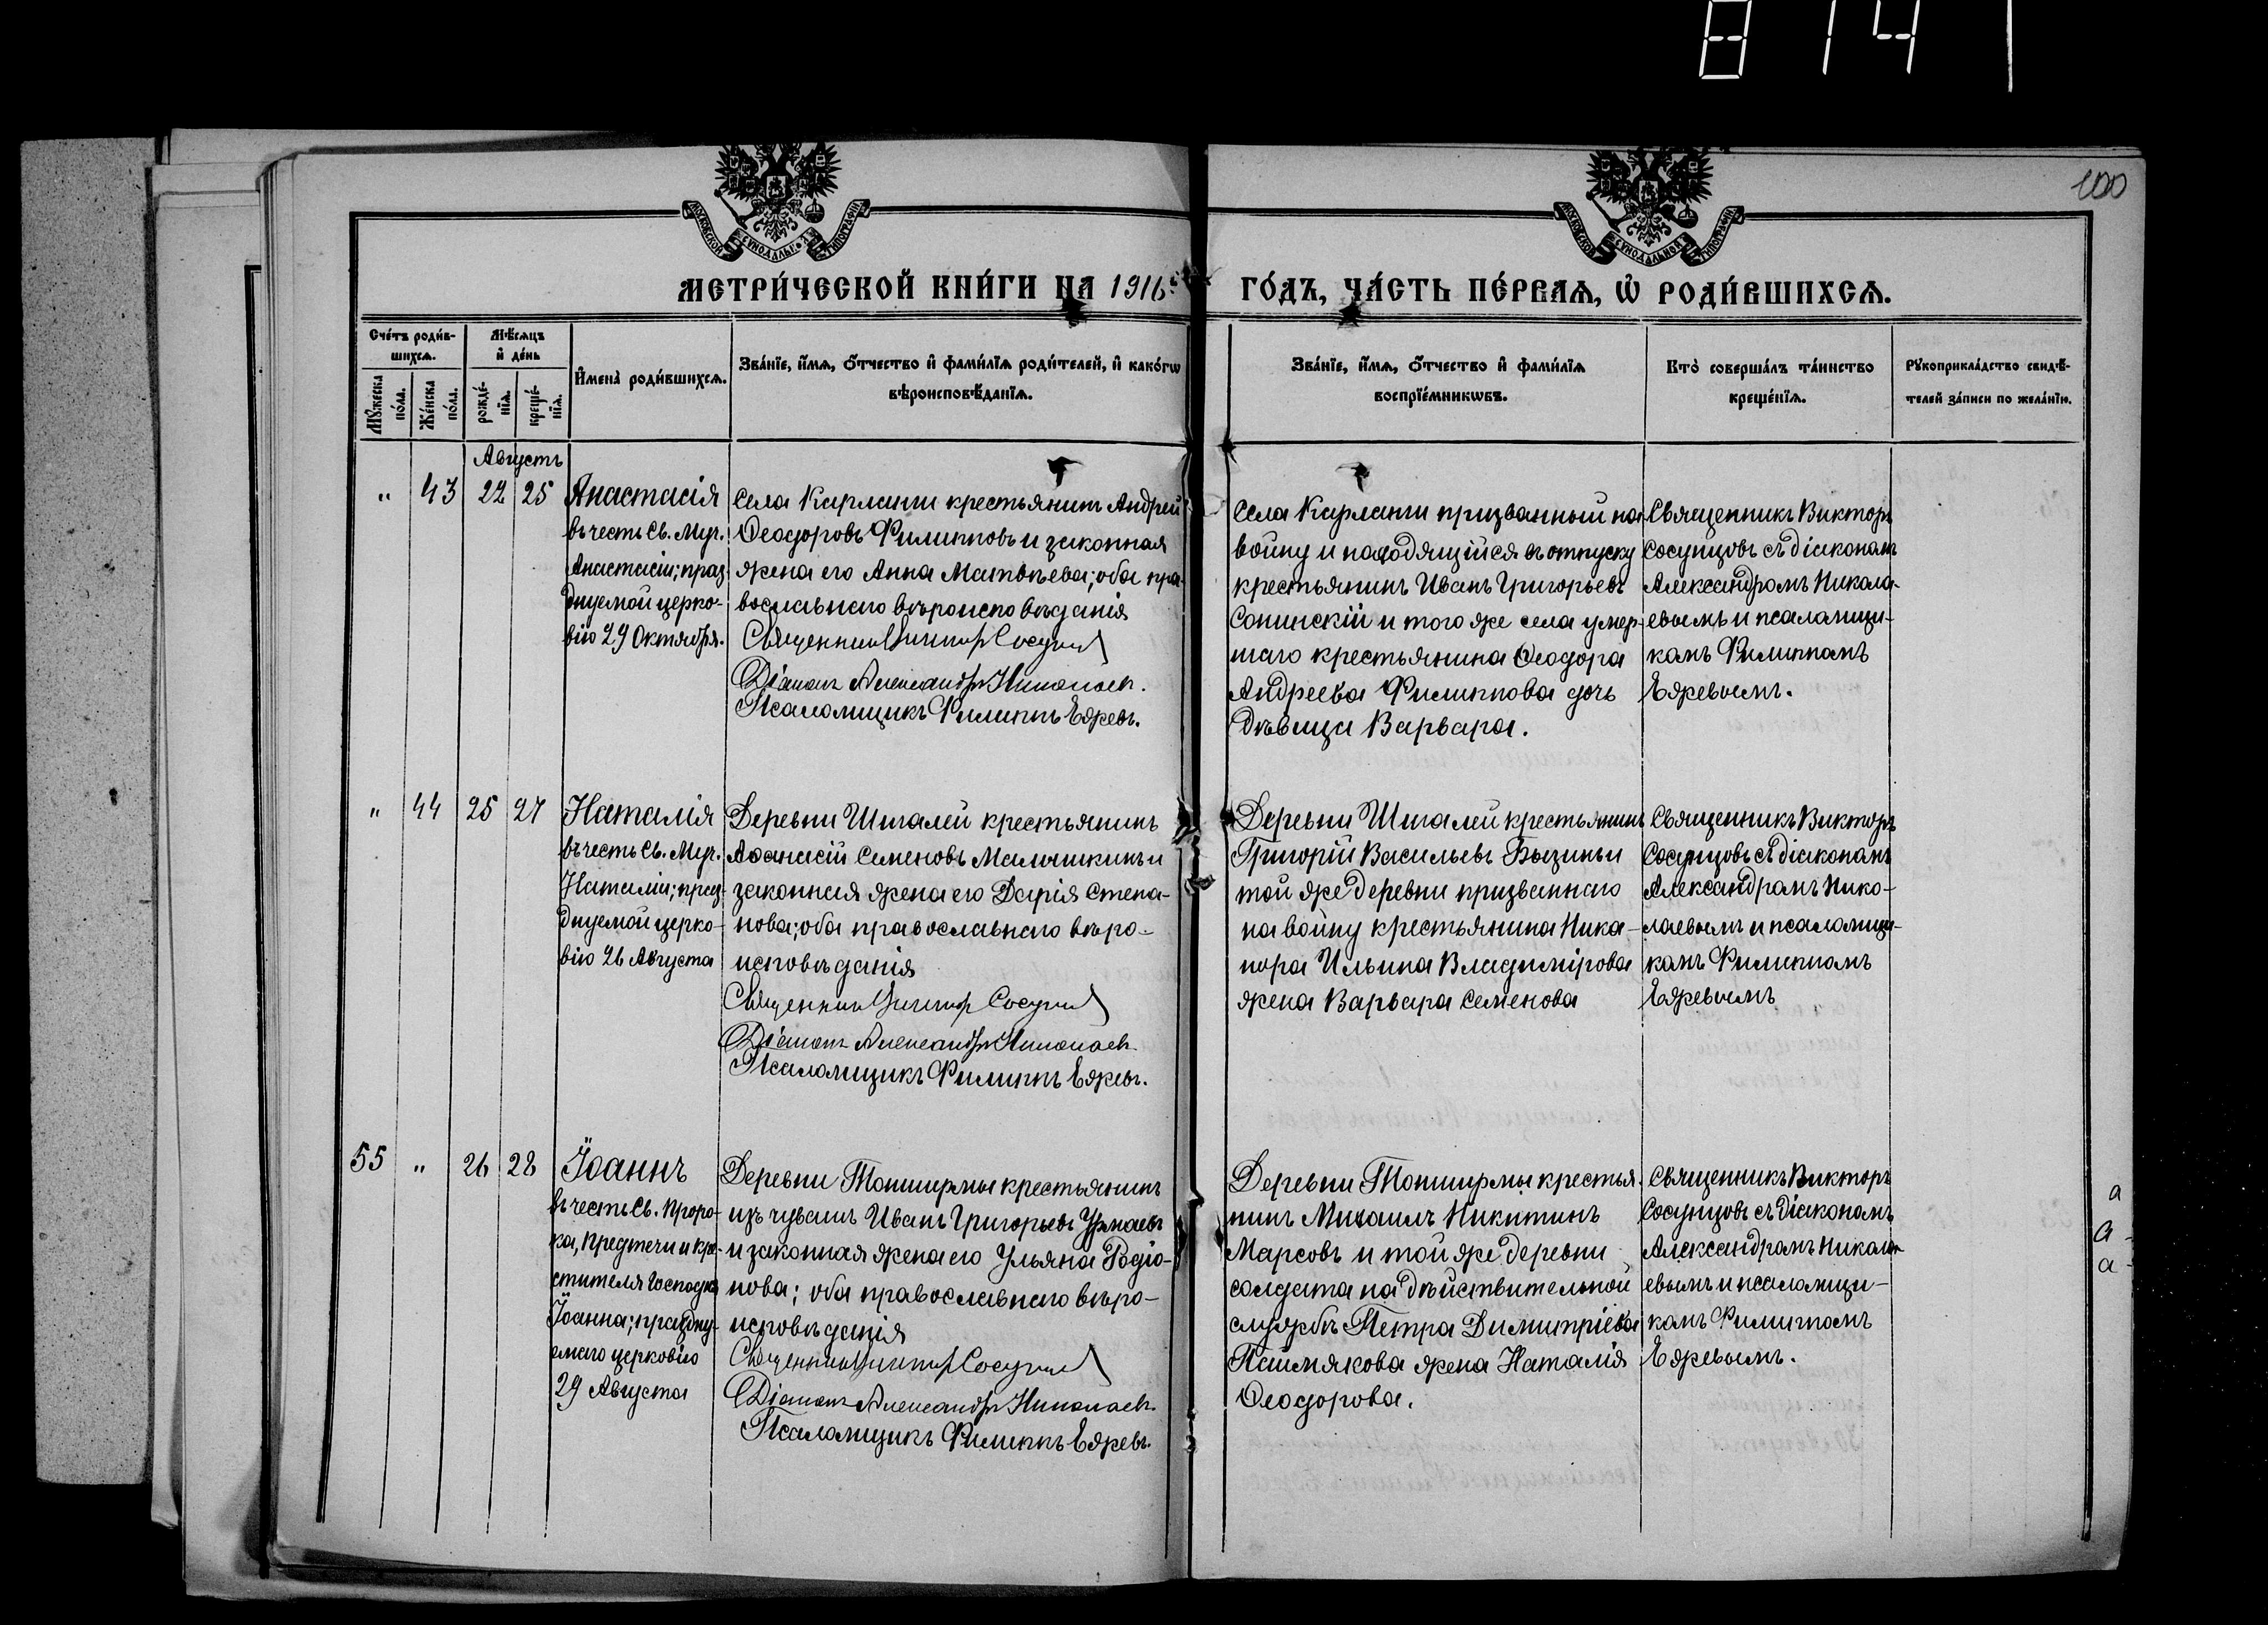 8141
100
МОСКОВСКОЙ СУНОДАЛЬНОЙ ТИПОГРАФІИ
МОСКОВСКОЙ СУНОДАЛЬНОЙ ТИПОГРАФІИ
МЕТРИ́ЧЕСКОЙ КНИ́ГИ НА 1916 ГО́ДЪ, ЧА́СТЬ ПЕ́РВАѦ, Ѡ҆ РОДИ́ВШИХСѦ.
Сче́тъ роди́в-
шихсѧ.
Мꙋ́жеска по́ла.
Же́нска по́ла.
Мѣ́сѧцъ
и҆ де́нь
рожде́-нїѧ.
креще́-нїѧ.
И҆мена̀ роди́вшихсѧ.
Зва́нїе, и҆́мѧ, ѻ҆́тчество и҆ фами́лїѧ роди́телей, и҆ како́гѡ
вѣроисповѣ́данїѧ.
Зва́нїе, и҆́мѧ, ѻ҆́тчество и҆ фами́лїѧ
воспрїе́мникѡвъ.
Кто̀ соверша́лъ та́инство
креще́нїѧ.
Рꙋкоприкла́дство свидѣ́-
телей за́писи по жела́нїю.
Августъ
" 43 22 25
Анастасія
въ честь Св. Муч.
Анастасіи; праз-
днуемой церко-
вію 29 Октября.
Села Карланги крестьянинъ Андрей
Ѳеодоровъ Филипповъ и законная
жена его Анна Матвѣева; оба пра-
вославнаго вѣроисповѣданія
Священникъ Викторъ Сосунцовъ
Діаконъ Александръ Николаевъ.
Псаломщикъ Филиппъ Ежревъ.
Села Карланги призванный на
войну и находящійся въ отпуску
крестьянинъ Иванъ Григорьевъ
Сопинскій и того же села умер-
шаго крестьянина Ѳеодора
Андреева Филиппова дочь
дѣвица Варвара.
Священникъ Викторъ
Сосунцовъ съ діакономъ
Александромъ Никола-
евымъ и псаломщи-
комъ Филиппомъ
Ежревымъ.
" 44 25 27
Наталія
въ честь Св. Муч.
Наталіи; праз-
днуемой церко-
вію 26 Августа
Деревни Шигалей крестьянинъ
Аѳанасій Семеновъ Малышкинъ и
законная жена его Дарія Степа-
нова; оба православнаго вѣро-
исповѣданія
Священникъ Викторъ Сосунцовъ
Діаконъ Александръ Николаевъ.
Псаломщикъ Филиппъ Ежревъ.
Деревни Шигалей крестьянинъ
Григорій Васильевъ Бызинъ и
той же деревни призваннаго
на войну крестьянина Ника-
нора Ильина Владимірова
жена Варвара Семенова
Священникъ Викторъ
Сосунцовъ съ діакономъ
Александромъ Нико-
лаевымъ и псаломщи-
комъ Филиппомъ
Ежревымъ
55 " 26 28
Іоаннъ
въ честь Св. Проро-
ка, Предтечи и Кре-
стителя Господня
Іоанна; праздну-
емаго церковію
29 Августа
Деревни Топширмы крестьянинъ
изъ чувашъ Иванъ Григорьевъ Урмаевъ
и законная жена его Ульяна Родіо-
нова; оба православнаго вѣро-
исповѣданія
Священникъ Викторъ Сосунцовъ
Діаконъ Александръ Николаевъ.
Псаломщикъ Филиппъ Ежревъ.
Деревни Топширмы крестья-
нинъ Михаилъ Никитинъ
Марсовъ и той же деревни
солдата на дѣйствительной
службѣ Петра Димитріева
Паймякова жена Наталія
Ѳеодорова.
Священникъ Викторъ
Сосунцовъ съ діакономъ
Александромъ Никола-
евымъ и псаломщи-
комъ Филиппомъ
Ежревымъ.
а
а
а